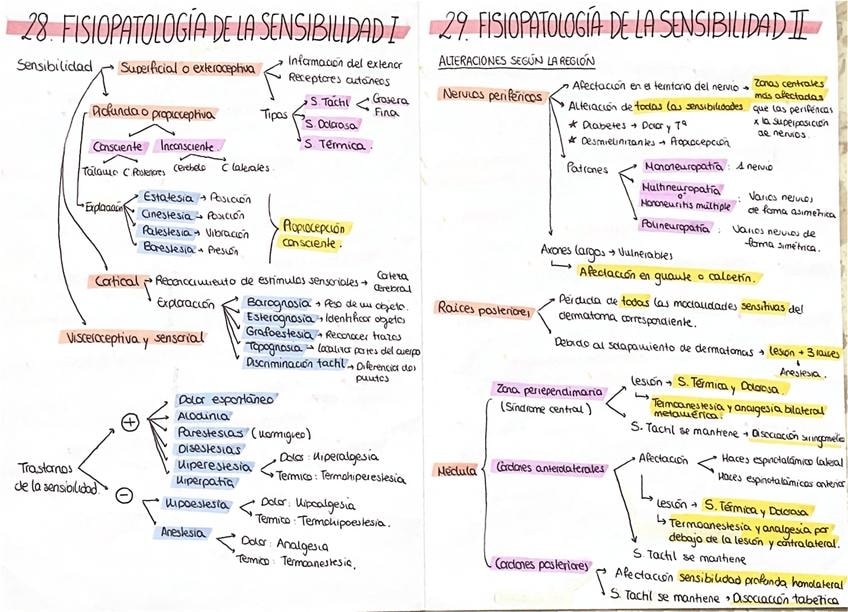 28. FISIOPATOLOGÍA DE LA SENSIBILIDAD I
Sensibilidad → Superficial o exteroceptiva → Información del exterior
→ Receptores cutáneos
Tipos → S. Táctil → Grosera
→ Fina
→ S. Dolorosa
→ S. Térmica.
Profunda o propioceptiva
Consciente Inconsciente
Tálamo C Posteriores cerebelo C laterales.
Exploración → Estatesia → Posición
Cinestesia → Posición
Palestesia → Vibración
Barestesia → Presión
Propiocepción
consciente.
Cortical → Reconocimiento de estímulos sensoriales → Corteza
cerebral
Exploración → Barognosia → Peso de un objeto.
Esterognosia → Identificar objetos
Grafoestesia → Reconocer trazos
Topognosia → Localizar partes del cuerpo
Discriminación táctil → Diferenciar dos
puntos
Visceroceptiva y sensorial
Trastornos
de la sensibilidad.
+
Dolor espontáneo
Alodinia
Parestesias (hormigueo)
Disestesias
Hiperestesia → Dolor: Hiperalgesia
→ Térmico: Termohiperestesia
Hiperpatía
-
Hipoestesia → Dolor: Hipoalgesia
→ Térmico: Termohipoestesia.
Anestesia → Dolor: Analgesia
→ Térmico: Termoanestesia.
29. FISIOPATOLOGÍA DE LA SENSIBILIDAD II
ALTERACIONES SEGÚN LA REGIÓN
Nervios periféricos → Afectación en el territorio del nervio → Zonas centrales
más afectadas
que las periféricas
x la superposición
de nervios.
→ Alteración de todas las sensibilidades
* Diabetes → Dolor y Tª
* Desmielinizantes → Propiocepción
Patrones → Mononeuropatía : 1 nervio
Multineuropatía
o
Mononeuritis múltiple : Varios nervios
de forma asimétrica
Polineuropatía : Varios nervios de
forma simétrica.
Axones largos → Vulnerables
↳ Afectación en guante o calcetín.
Raíces posteriores → Pérdida de todas las modalidades sensitivas del
dermatoma correspondiente.
→ Debido al solapamiento de dermatomas → lesión + 3 raíces
↓
Anestesia.
Médula
Zona periependimaria
(Síndrome central)
lesión → S. Térmica y Dolorosa.
↳ Termoanestesia y analgesia bilateral
metamérica.
S. Táctil se mantiene → Disociación siringomiélica
Cordones anterolaterales → Afectación → Haces espinotalámico lateral
→ Haces espinotalámicos anterior
→ lesión → S. Térmica y Dolorosa
↳ Termoanestesia y analgesia por
debajo de la lesión y contralateral.
S. Táctil se mantiene
Cordones posteriores → Afectación sensibilidad profunda homolateral
→ S. Táctil se mantiene → Disociación tabética